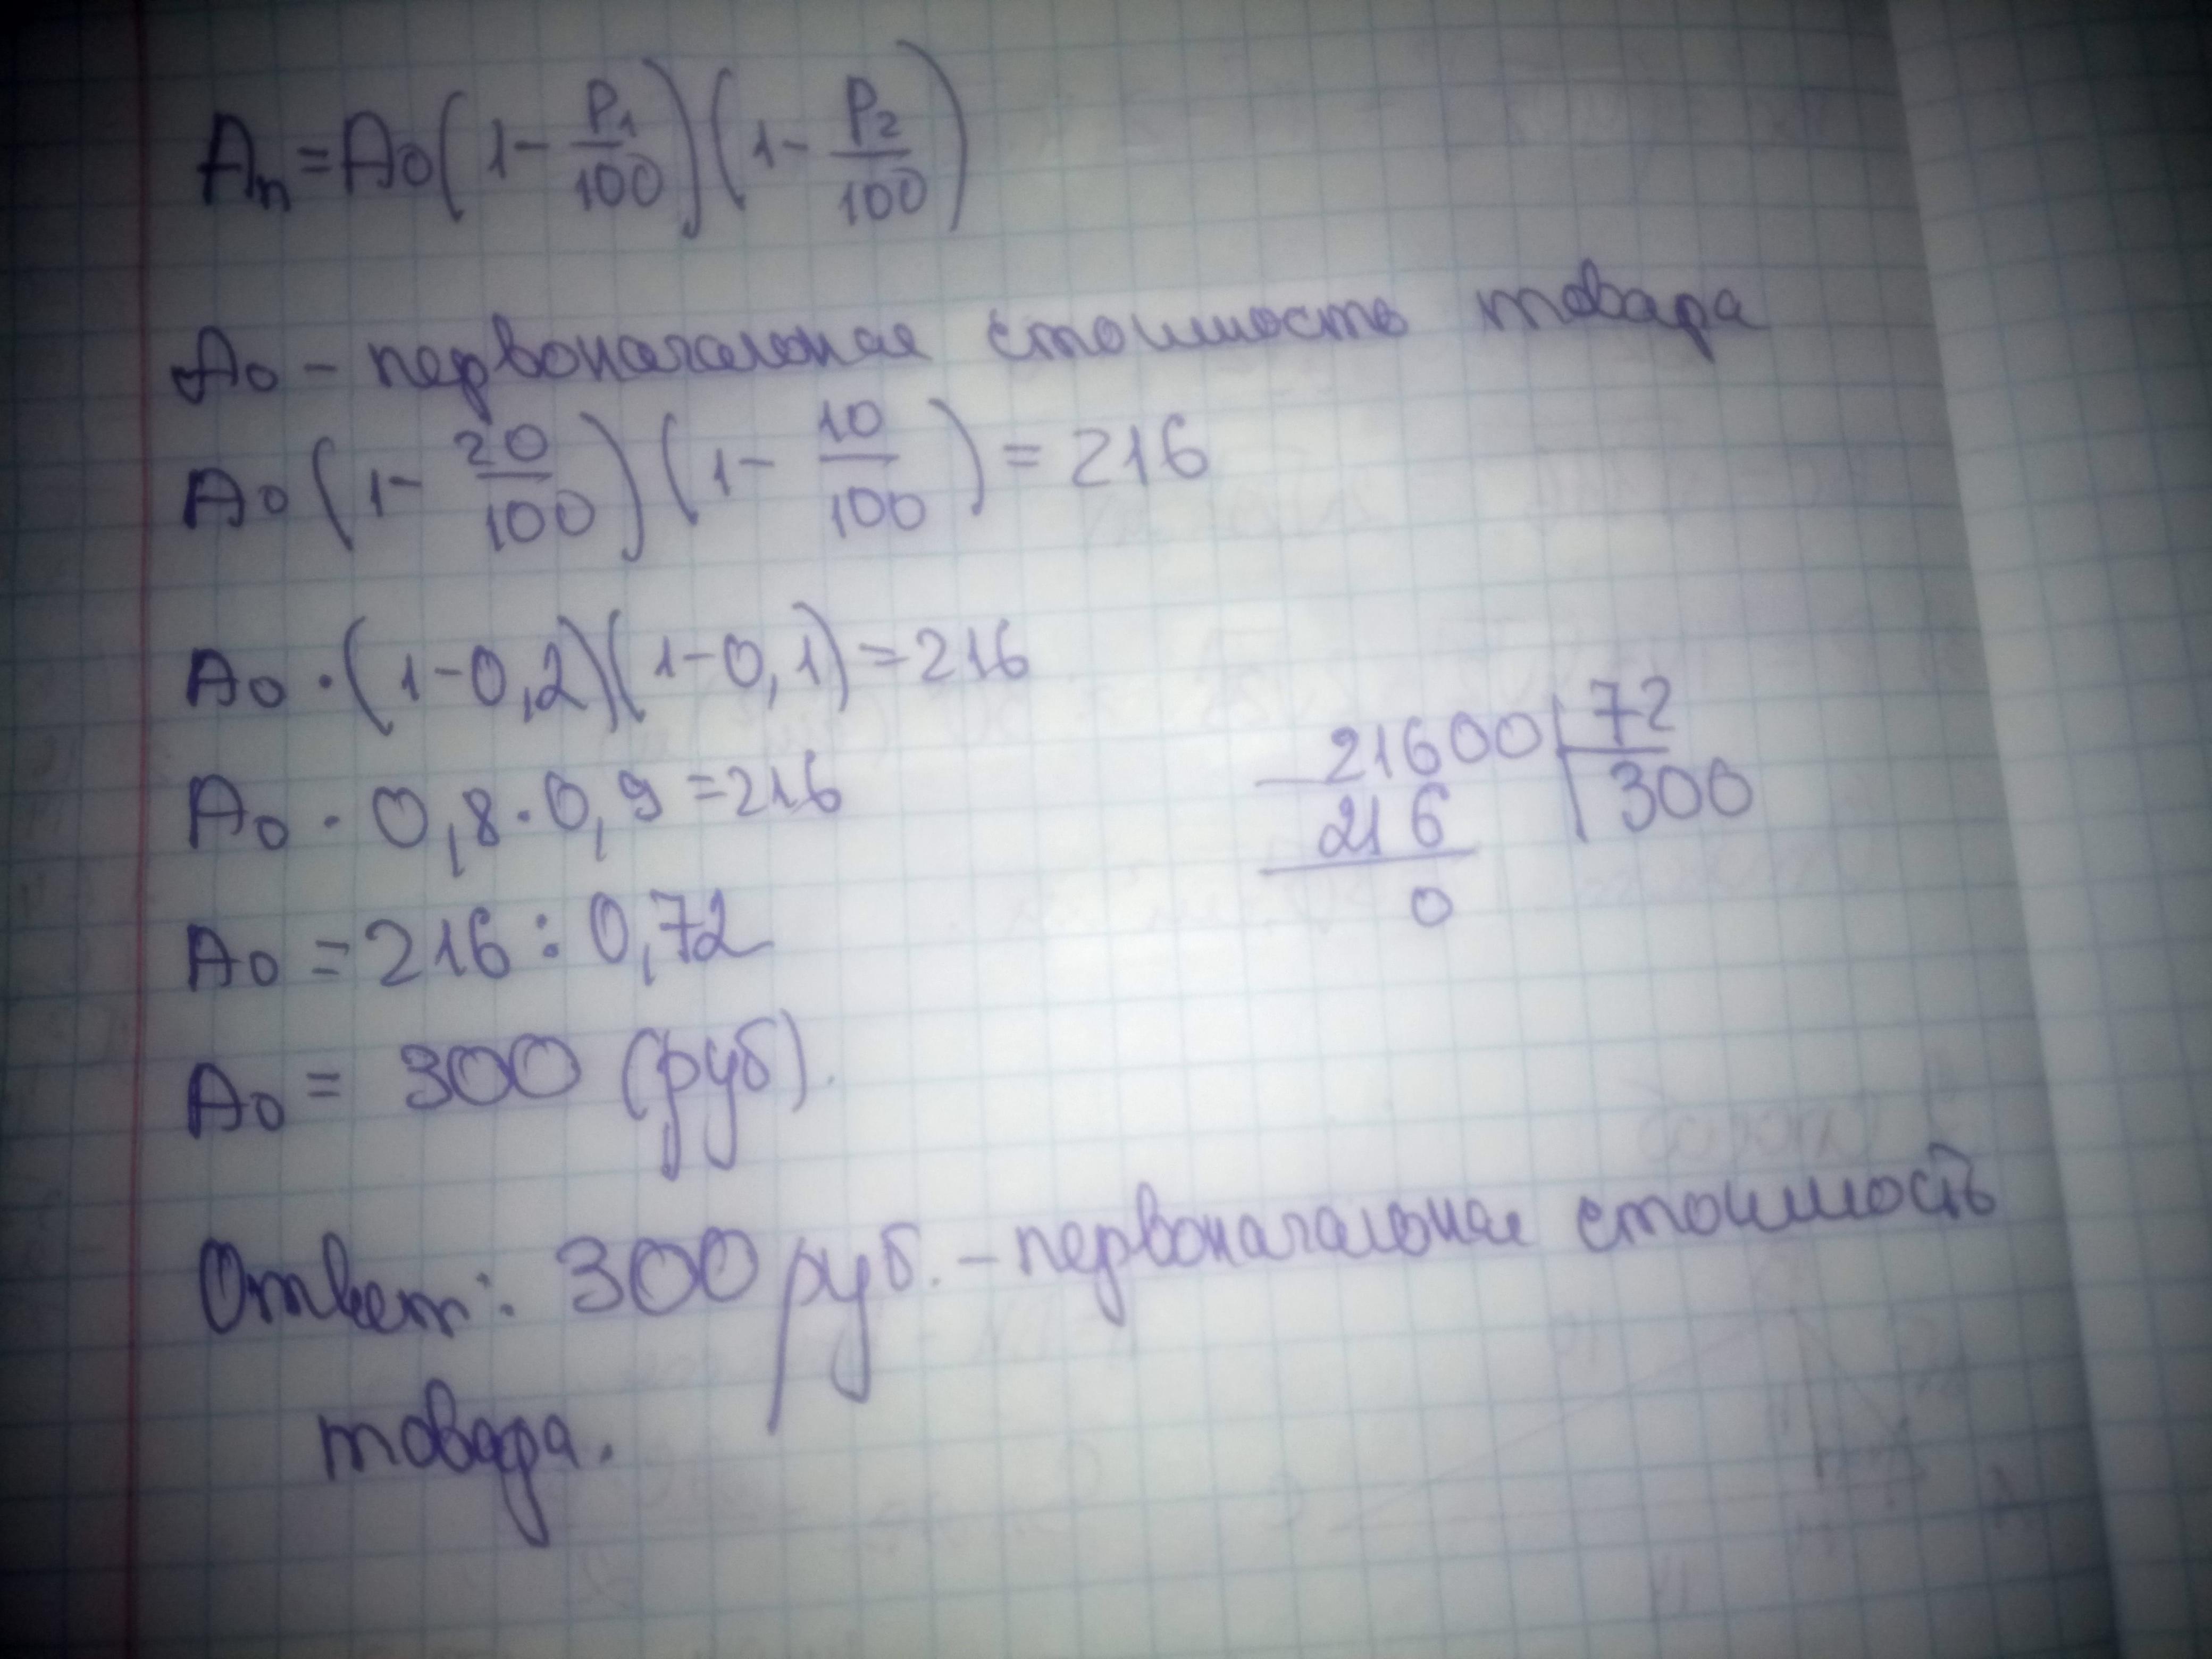 Aₙ = A₀(1 - P₁/100)(1 - P₂/100)
A₀ - первоначальная стоимость товара
A₀(1 - 20/100)(1 - 10/100) = 216
A₀ · (1-0,2)(1-0,1) = 216
A₀ · 0,8 · 0,9 = 216
A₀ = 216 : 0,72
A₀ = 300 (руб).
21600 | 72
- 216 | 300
0
Ответ: 300 руб. - первоначальная стоимость
товара.